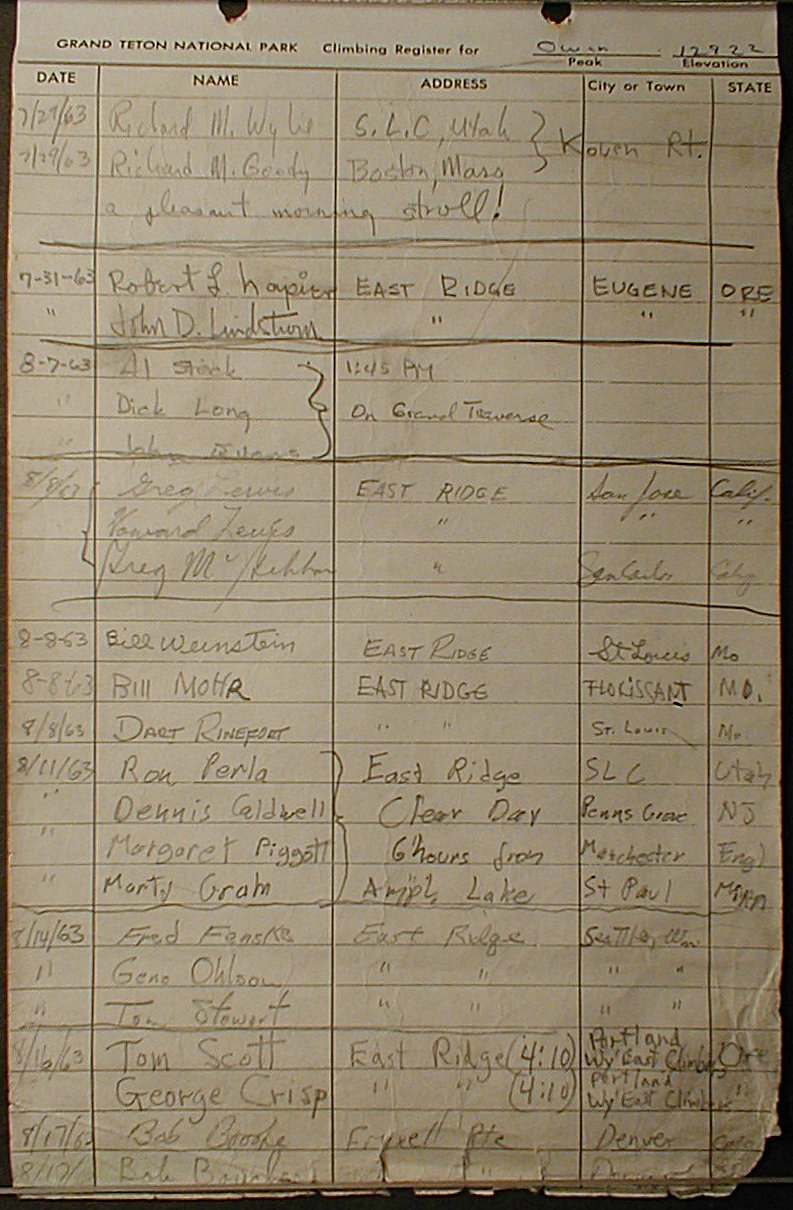 GRAND TETON NATIONAL PARK Climbing Register for Owen 12922
Peak Elevation
DATE NAME ADDRESS City or Town STATE
7/29/63 Richard M. Wylie S.L.C, Utah } Koven Rt.
7/29/63 Richard M. Goody Boston, Mass
a pleasant morning stroll!
7-31-63 Robert L. Napier EAST RIDGE EUGENE ORE
" John D. Lindstrom " " "
8-7-63 Al 1:45 PM
" Dick Long On Grand Traverse
" John Evans
8/8/63 Greg Lewis EAST RIDGE San Jose Calif.
Howard Lewis " " "
Greg " San Carlos Calif
8-8-63 Bill Weinstein EAST RIDGE St Louis Mo
8-8-63 BILL MOHR EAST RIDGE FLORISSANT MO.
8/8/63 DART RINEFORT " " ST. Louis Mo
8/11/63 Ron Perla East Ridge SLC Utah
" Dennis Caldwell Clear Day Penns Grove NJ
" Margaret Piggott 6 hours from Manchester Engl
" Marty Grah Amph Lake St Paul Minn
8/14/63 Fred Fenske East Ridge Seattle, Wn
" Gene Ohlson " " " "
" Tom Stewart " " " "
8/16/63 Tom Scott East Ridge (4:10) Portland Wy'East Climbers Ore
George Crisp " " (4:10) Portland Wy'East Climbers "
8/17/63 Bob Fryxell Rte Denver Colo
Bob " "